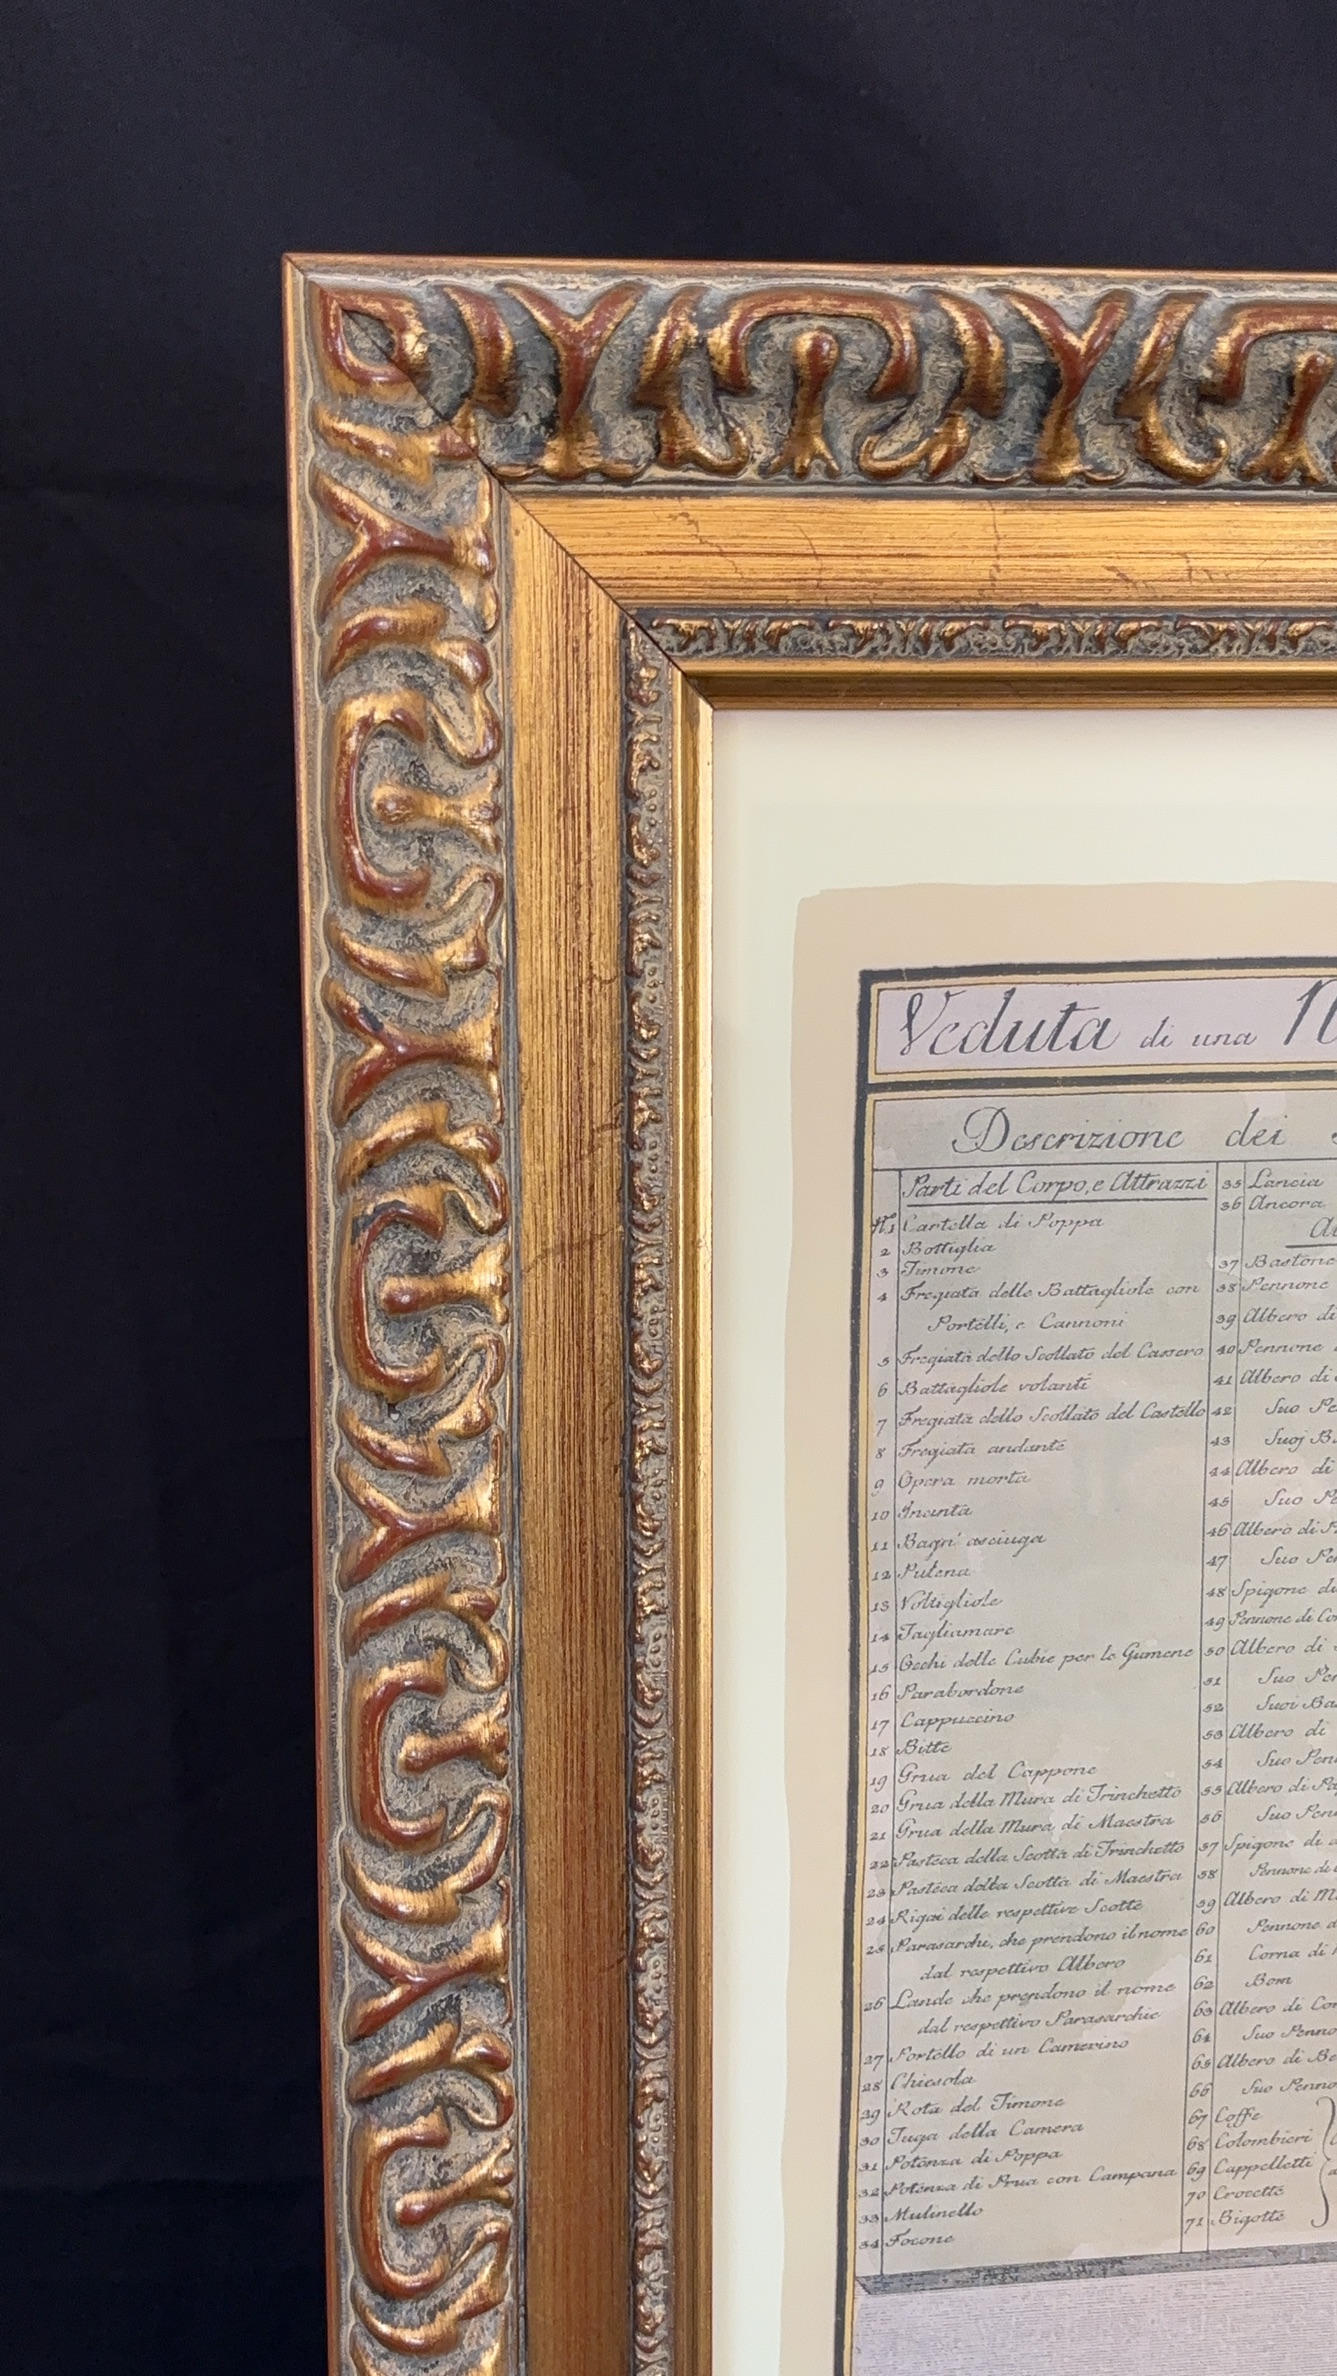 Veduta di una
Descrizione dei
Parti del Corpo, e Attrazzi
N.1 Cartella di Poppa
2 Bottiglia
3 Timone
4 Fregiata delle Battagliole con
Portelli, e Cannoni
5 Fregiata dello Scollato del Cassero
6 Battagliole volanti
7 Fregiata dello Scollato del Castello
8 Fregiata andante
9 Opera morta
10 Incinta
11 Bagn' asciuga
12 Pulena
13 Voltigliole
14 Tagliamare
15 Occhi delle Cubie per le Gumene
16 Parabordone
17 Cappuccino
18 Bitte
19 Grua del Cappone
20 Grua della Mura di Trinchetto
21 Grua della Mura di Maestra
22 Pasteca della Scotta di Trinchetto
23 Pasteca della Scotta di Maestra
24 Rigai delle respettive Scotte
25 Parasarchi, che prendono il nome
dal respettivo Albero
26 Lande che prendono il nome
dal respettivo Parasarchie
27 Portello di un Camerino
28 Chiesola
29 Rota del Timone
30 Tuga della Camera
31 Potenza di Poppa
32 Potenza di Prua con Campana
33 Mulinello
34 Focone
35 Lancia
36 Ancora
37 Bastone
38 Pennone
39 Albero di
40 Pennone
41 Albero di
42 Suo
43 Suoj
44 Albero di
45 Suo
46 Albero di
47 Suo
48 Spigone di
49 Pennone di
50 Albero di
51 Suo
52 Suoi
53 Albero di
54 Suo
55 Albero di
56 Suo
57 Spigone di
58 Pennone di
59 Albero di
60 Pennone
61 Corna di
62 Bom
63 Albero di
64 Suo
65 Albero di
66 Suo
67 Coffe
68 Colombieri
69 Cappelletti
70 Crocette
71 Bigotte